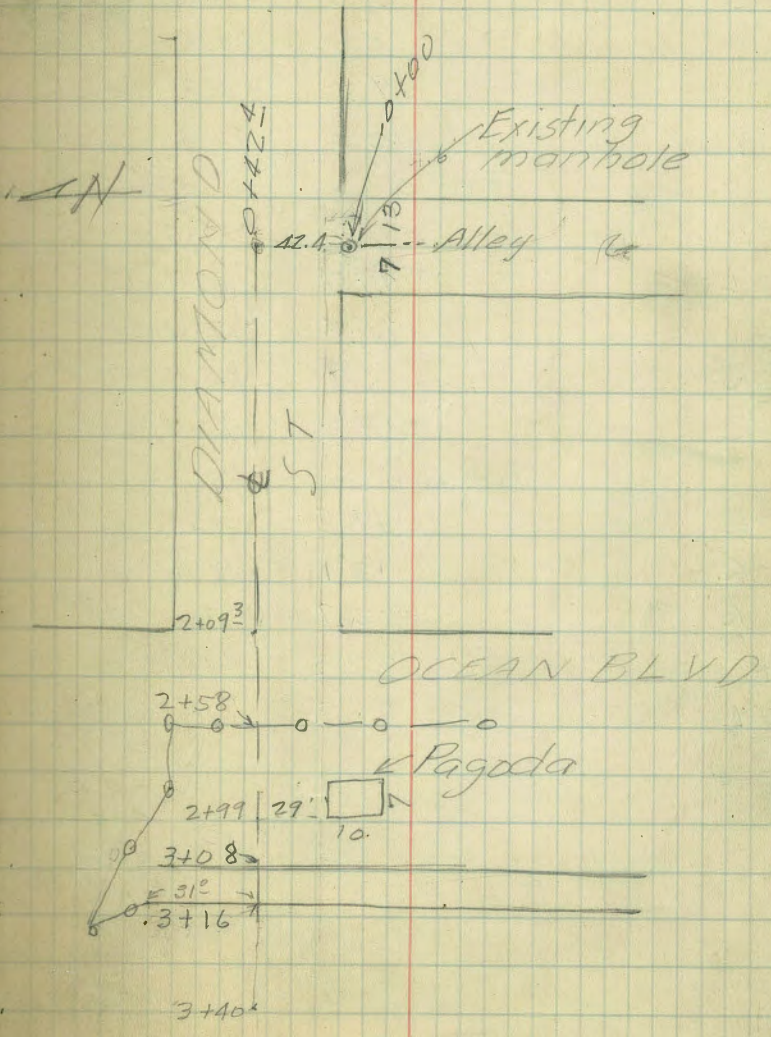 0+00
Existing
manhole
N
0+42.4
42.4
13
7
Alley
DIAMOND
ST
2+09.3
OCEAN BLVD
2+58
Pagoda
2+99
29'
7
10.
3+08
31.0
3+16
3+40